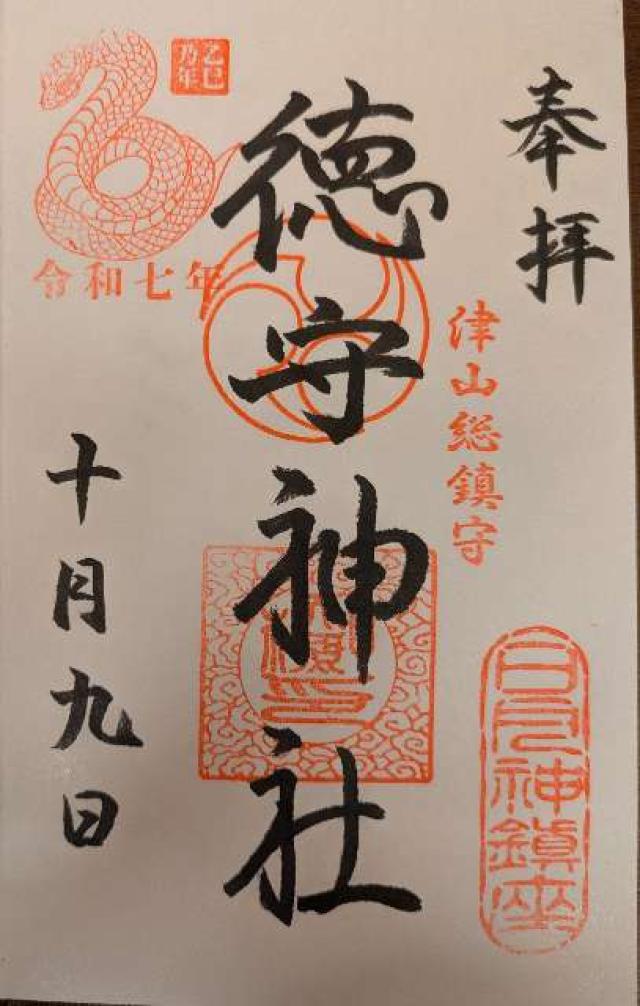 奉拝
津山総鎮守
日月神鎮座
徳守神社
乙巳
乃年
令和七年
十月九日